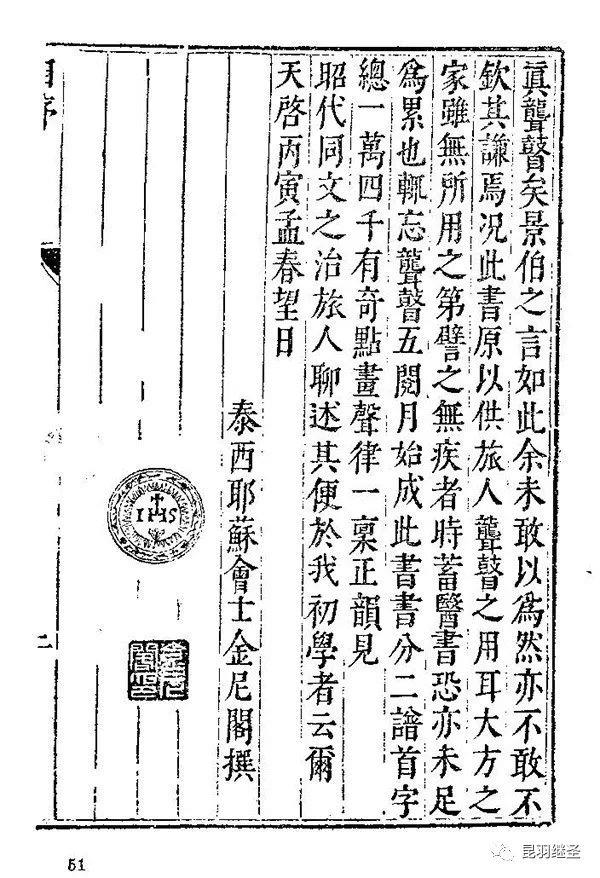 眞聾瞽矣景伯之言如此余未敢以爲然亦不敢不
欽其謙焉况此書原以供旅人聾瞽之用耳大方之
家雖無所用之第譬之無疾者時蓄醫書恐亦未足
爲累也輒忘聾瞽五閱月始成此書書分二譜首字
總一萬四千有奇點畫聲律一稟正韻見
昭代同文之治旅人聊述其便於我初學者云爾
天啓丙寅孟春望日
泰西耶蘇會士金尼閣撰
IHS
自序
二
51
昆羽继圣